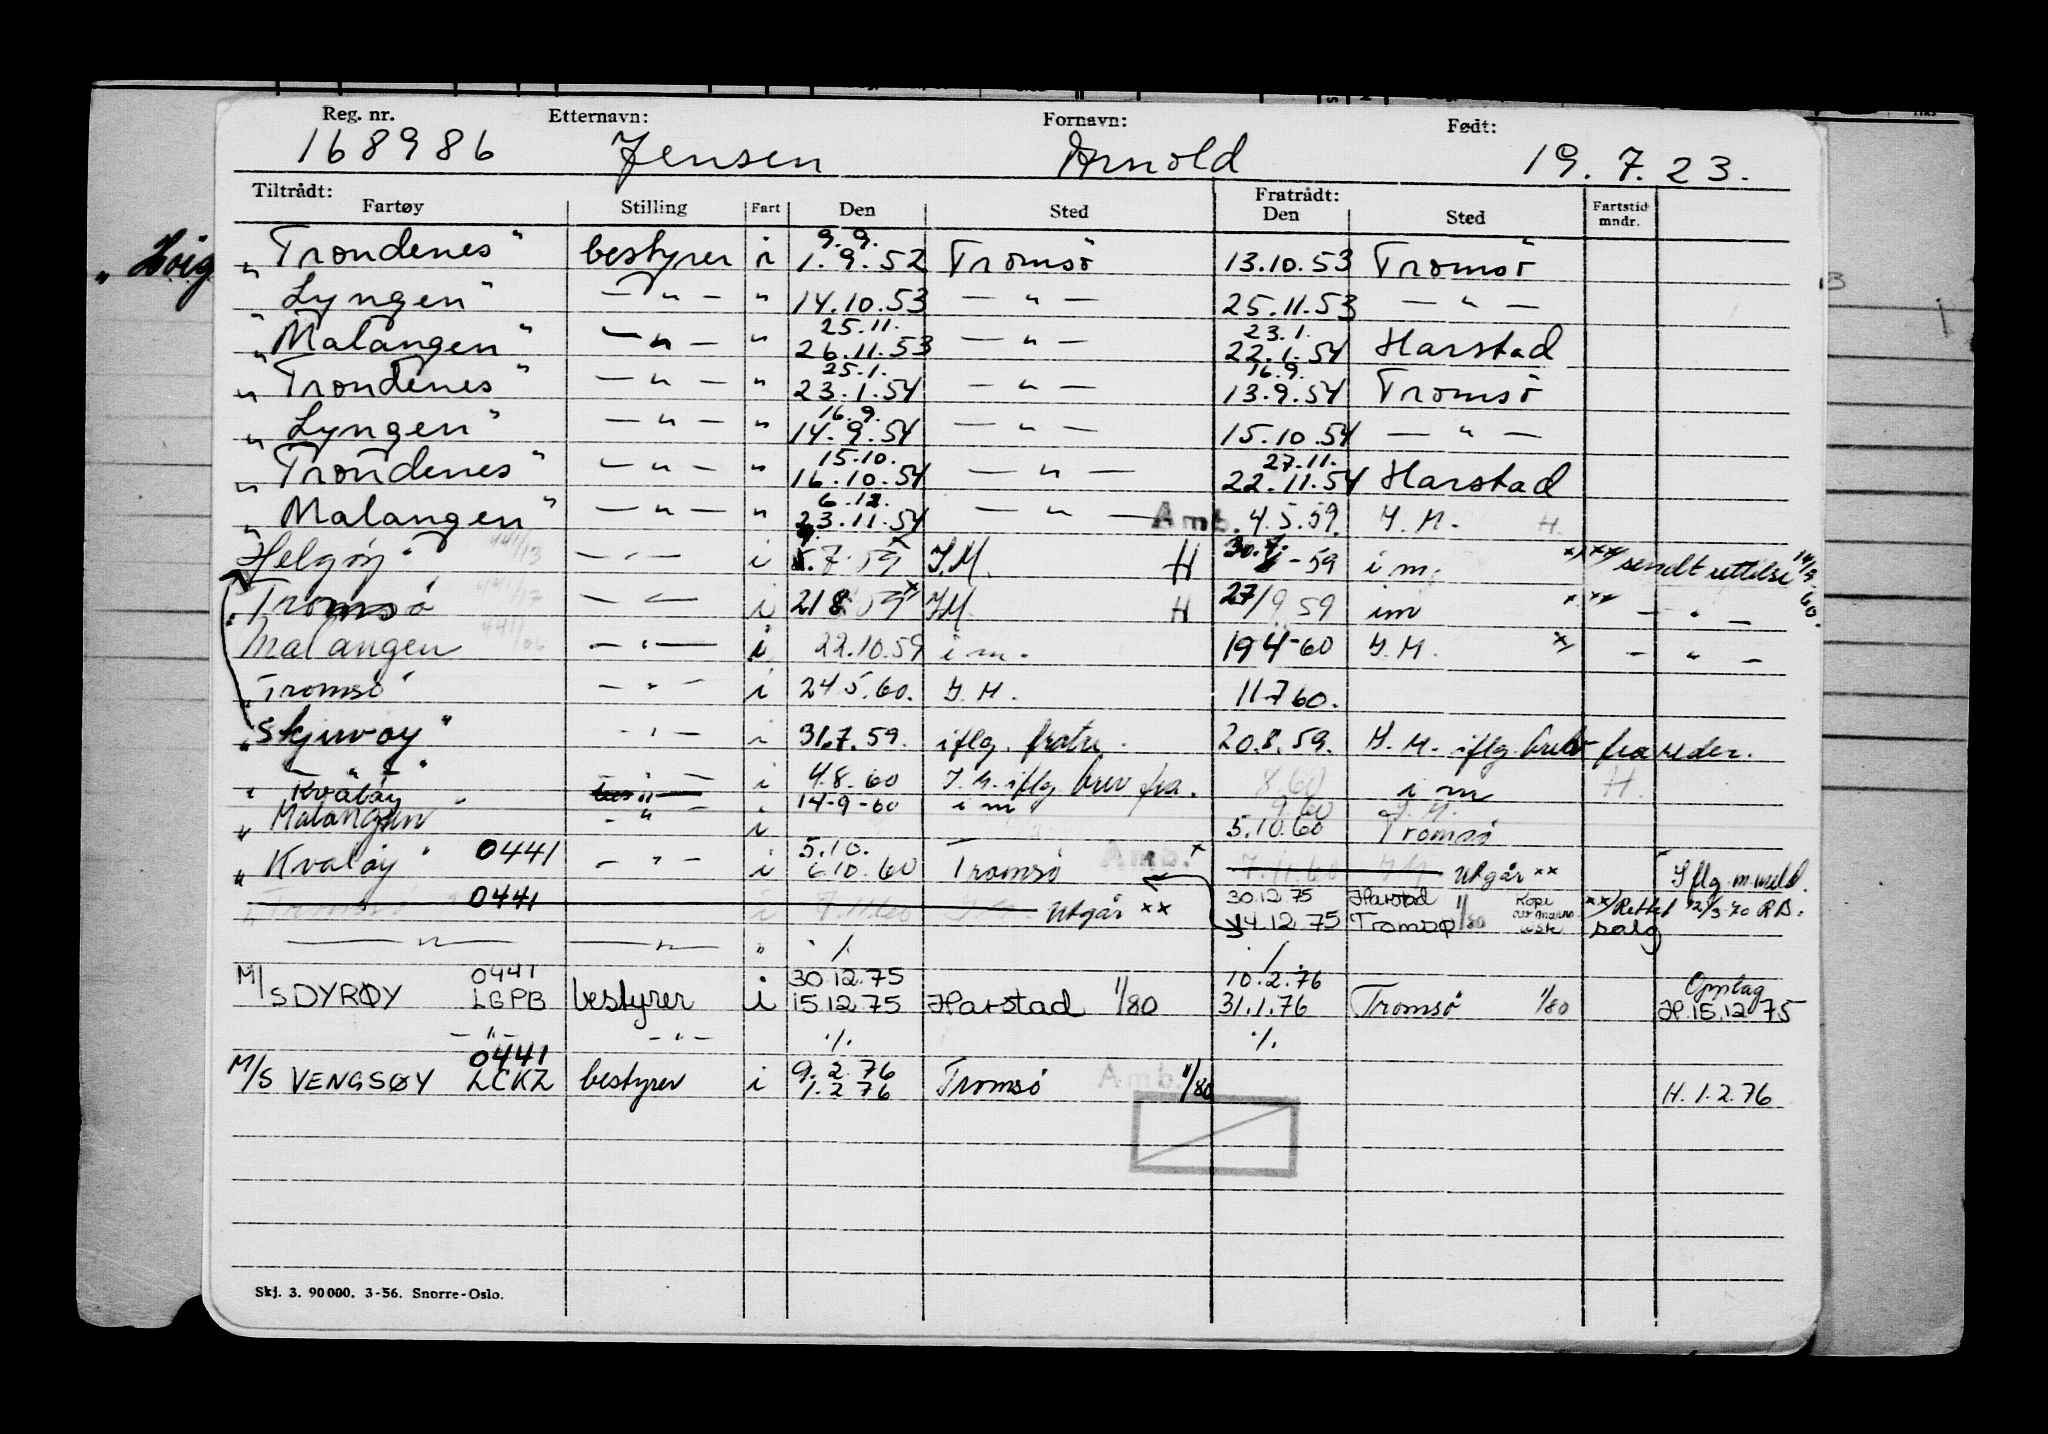 Reg. nr. Etternavn: Fornavn: Født:
168986 Jensen Arnold 19. 7. 23.
Tiltrådt: Fratrådt:
Fartøy Stilling Fart Den Sted Den Sted Fartstid mndr.
9. 9.
"Trondenes" bestyrer i 1. 9. 52 Tromsö 13.10.53 Tromsö
"Lyngen" — " — " 14.10.53 — " — 25.11.53 — " —
25.11. 23.1.
"Malangen" — " — " 26.11.53 — " — 22.1.54 Harstad
25.1. 16.9.
"Trondenes" — " — " 23.1.54 — " — 13.9.54 Tromsö
16.9.
"Lyngen" — " — " 14.9.54 — " — 15.10.54 — " —
15.10. 27.11.
"Trondenes" — " — " 16.10.54 — " — 22.11.54 Harstad
6.12.
"Malangen" — " — " 23.11.54 — " — Amb. 4.5.59. I. M. H.
Helgöy" 441/13 — " — i 7.59 I.M. H 30.7-59 i m. xx/ sendt rettelse 14/9 60.
"Tromsö 441/17 — " — i 21 8 59 IM. H 27/9.59 im — " —
Malangen 441/06 — " — i 22.10.59 i m. 19 4-60 I. M. x/ — " —
"Tromsö" — " — i 24.5.60. I. M. 11 7 60.
"Skjervøy" — " — i 31.7.59. iflg. fratr. 20.8.59. I. M. iflg. brev fra reder.
"Kvaløy" — " — i 4.8.60 I. M. iflg. brev fra. 8.60 i m H.
"Malangen" — " — i 14-9-60 i m 9.60 I. M.
5.10.60 Tromsø
5.10.
"Kvaløy" 0441 — " — i 6.10.60 Tromsø Amb. x 7.11.60 I M Utgår xx Iflg. m. meld.
"Tromsö 0441 i 7.11.60 I. M. Utgår xx 30.12.75 Harstad Kopi xx/ Rettet 12/3-70 RB.
14.12.75 Tromsø 11/80 salg
— " — — " — " ./. ./.
0441 30.12.75 10.2.76 Opplag
M/S DYRØY LGPB bestyrer i 15.12.75 Harstad 11/80 31.1.76 Tromsö 11/80 H. 15.12.75
— " — — " — ./. ./.
0441 9.2.76
M/S VENGSØY LCKZ bestyrer i 1.2 76 Tromsö Amb. 11/80 H. 1.2.76
Skj. 3. 90 000. 3-56. Snorre-Oslo.